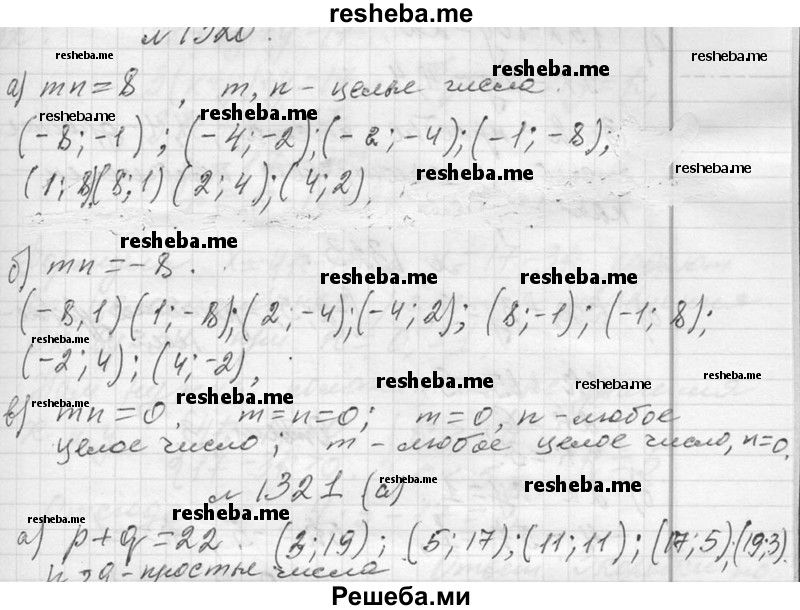 resheba.me
№ 1320. resheba.me resheba.me
а) mn = 8, m, n - целые числа. resheba.me
resheba.me resheba.me
(-8; -1); (-4; -2); (-2; -4); (-1; -8);
(1; 8)(8; 1) (2; 4); (4; 2), resheba.me resheba.me
resheba.me
б) mn = -8. resheba.me resheba.me
(-8, 1) (1; -8); (2; -4); (-4; 2); (8; -1); (-1; 8);
resheba.me
(-2; 4); (4; -2), resheba.me resheba.me resheba.me
resheba.me resheba.me
в) mn = 0, m = n = 0; m = 0, n - любое
целое число; m - любое целое число, n = 0.
№ 1321 (а) resheba.me resheba.me
resheba.me resheba.me
а) p + q = 22. (3; 19); (5; 17); (11; 11); (17; 5); (19; 3).
простые числа
Решеба.ми